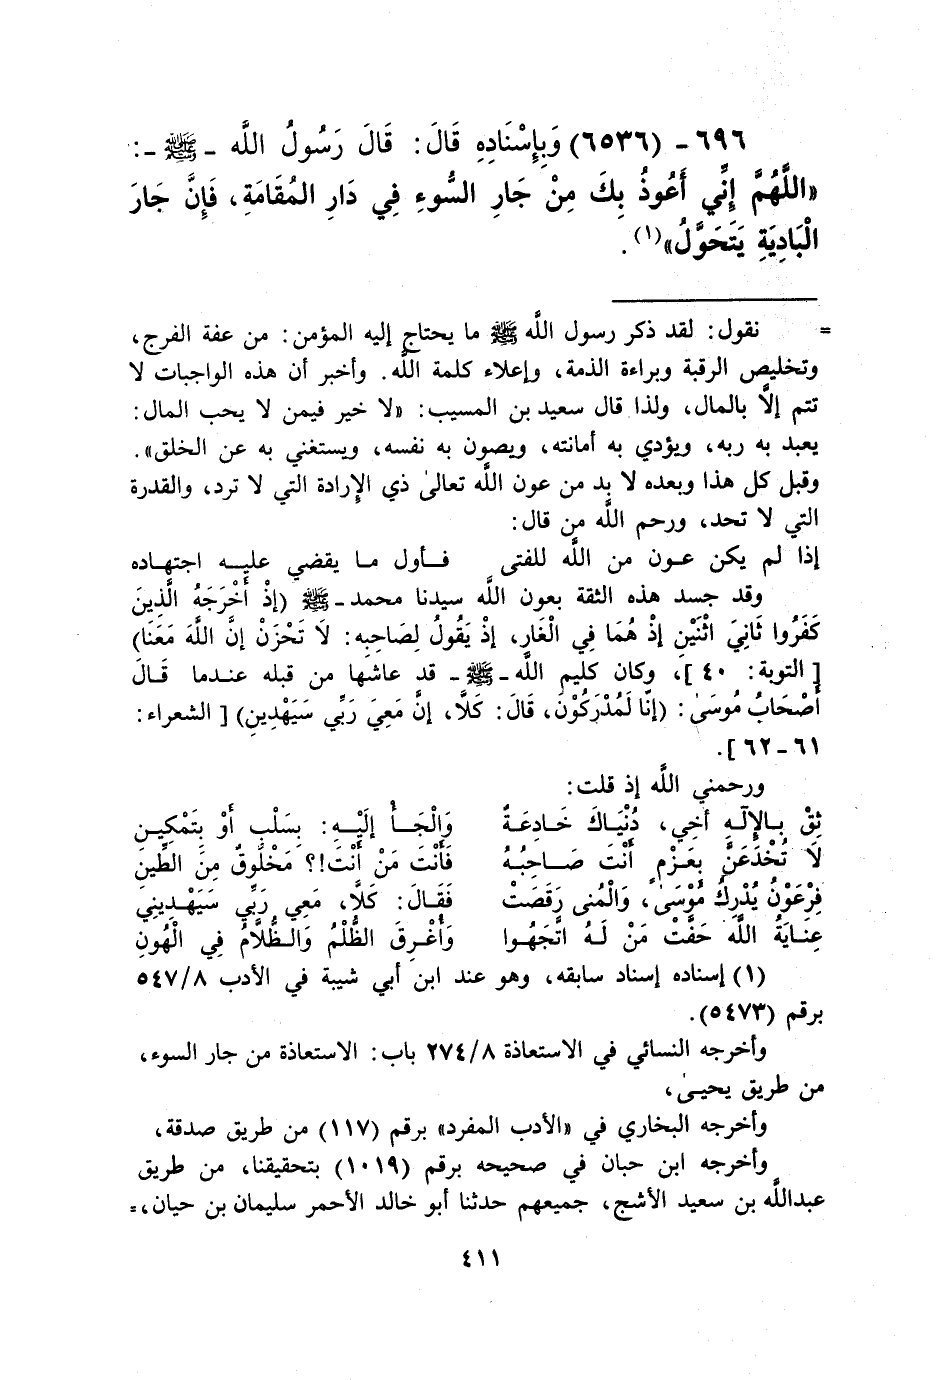 ٦٩٦ - (٦٥٣٦) وَبِإِسْنَادِهِ قَالَ: قَالَ رَسُولُ اللَّه - ﷺ -:
«اللَّهُمَّ إِنِّي أَعُوذُ بِكَ مِنْ جَارِ السُّوءِ فِي دَارِ المُقَامَةِ، فَإِنَّ جَارَ
الْبَادِيَةِ يَتَحَوَّلُ»(١).
= نقول: لقد ذكر رسول اللَّه ﷺ ما يحتاج إليه المؤمن: من عفة الفرج،
وتخليص الرقبة وبراءة الذمة، وإعلاء كلمة اللَّه. وأخبر أن هذه الواجبات لا
تتم إلاَّ بالمال، ولذا قال سعيد بن المسيب: «لا خير فيمن لا يحب المال:
يعبد به ربه، ويؤدي به أمانته، ويصون به نفسه، ويستغني به عن الخلق».
وقبل كل هذا وبعده لا بد من عون اللَّه تعالىٰ ذي الإرادة التي لا ترد، والقدرة
التي لا تحد، ورحم اللَّه من قال:
إذا لم يكن عـون من اللَّه للفتى فـأول مـا يقضي عليـه اجتهـاده
وقد جسد هذه الثقة بعون اللَّه سيدنا محمد - ﷺ (إِذْ أَخْرَجَهُ الَّذِينَ
كَفَرُوا ثَانِيَ اثْنَيْنِ إِذْ هُمَا فِي الْغَارِ، إِذْ يَقُولُ لِصَاحِبِهِ: لاَ تَحْزَنْ إِنَّ اللَّهَ مَعَنَا)
[التوبة: ٤٠]، وكان كليم اللَّه - ﷺ - قد عاشها من قبله عنـدما قَـالَ
أَصْحَابُ مُوسَىٰ: (إِنَّا لَمُدْرَكُوْنَ، قَالَ: كَلَّا، إِنَّ مَعِيَ رَبِّي سَيَهْدِينِ) [الشعراء:
٦١ - ٦٢].
ورحمني اللَّه إذ قلت:
ثِقْ بِـالإِلَـهِ أخِي، دُنْيَاكَ خَـادِعَـةٌ وَالْجَـأْ إِلَيْـهِ: بِسَلْبٍ أَوْ بِتَمْكِيـنِ
لَا تُخْدَعَنَّ بِعَـزْمٍ أَنْتَ صَـاحِبُـهُ فَأَنْتَ مَنْ أَنْتَ!؟ مَخْلُوقٌ مِنَ الطِّينِ
فِرْعَوْنُ يُدْرِكُ مُوْسَىٰ، وَالْمُنى رَقَصَتْ فَقَـالَ: كَلَّا، مَعِي رَبِّي سَيَهْـدِينِي
عِنَـايَةُ اللَّه حَفَّتْ مَنْ لَـهُ اتَّجَهُـوا وَأُغْـرِقَ الظُّلْمُ وَالـظُّلَّامُ فِي الْهُونِ
(١) إسناده إسناد سابقه، وهو عند ابن أبي شيبة في الأدب ٥٤٧/٨
برقم (٥٤٧٣).
وأخرجه النسائي في الاستعاذة ٢٧٤/٨ باب: الاستعاذة من جار السوء،
من طريق يحيىٰ،
وأخرجه البخاري في «الأدب المفرد» برقم (١١٧) من طريق صدقة،
وأخرجه ابن حبان في صحيحه برقم (١٠١٩) بتحقيقنا، من طريق
عبداللَّه بن سعيد الأشج، جميعهم حدثنا أبو خالد الأحمر سليمان بن حيان، =
٤١١